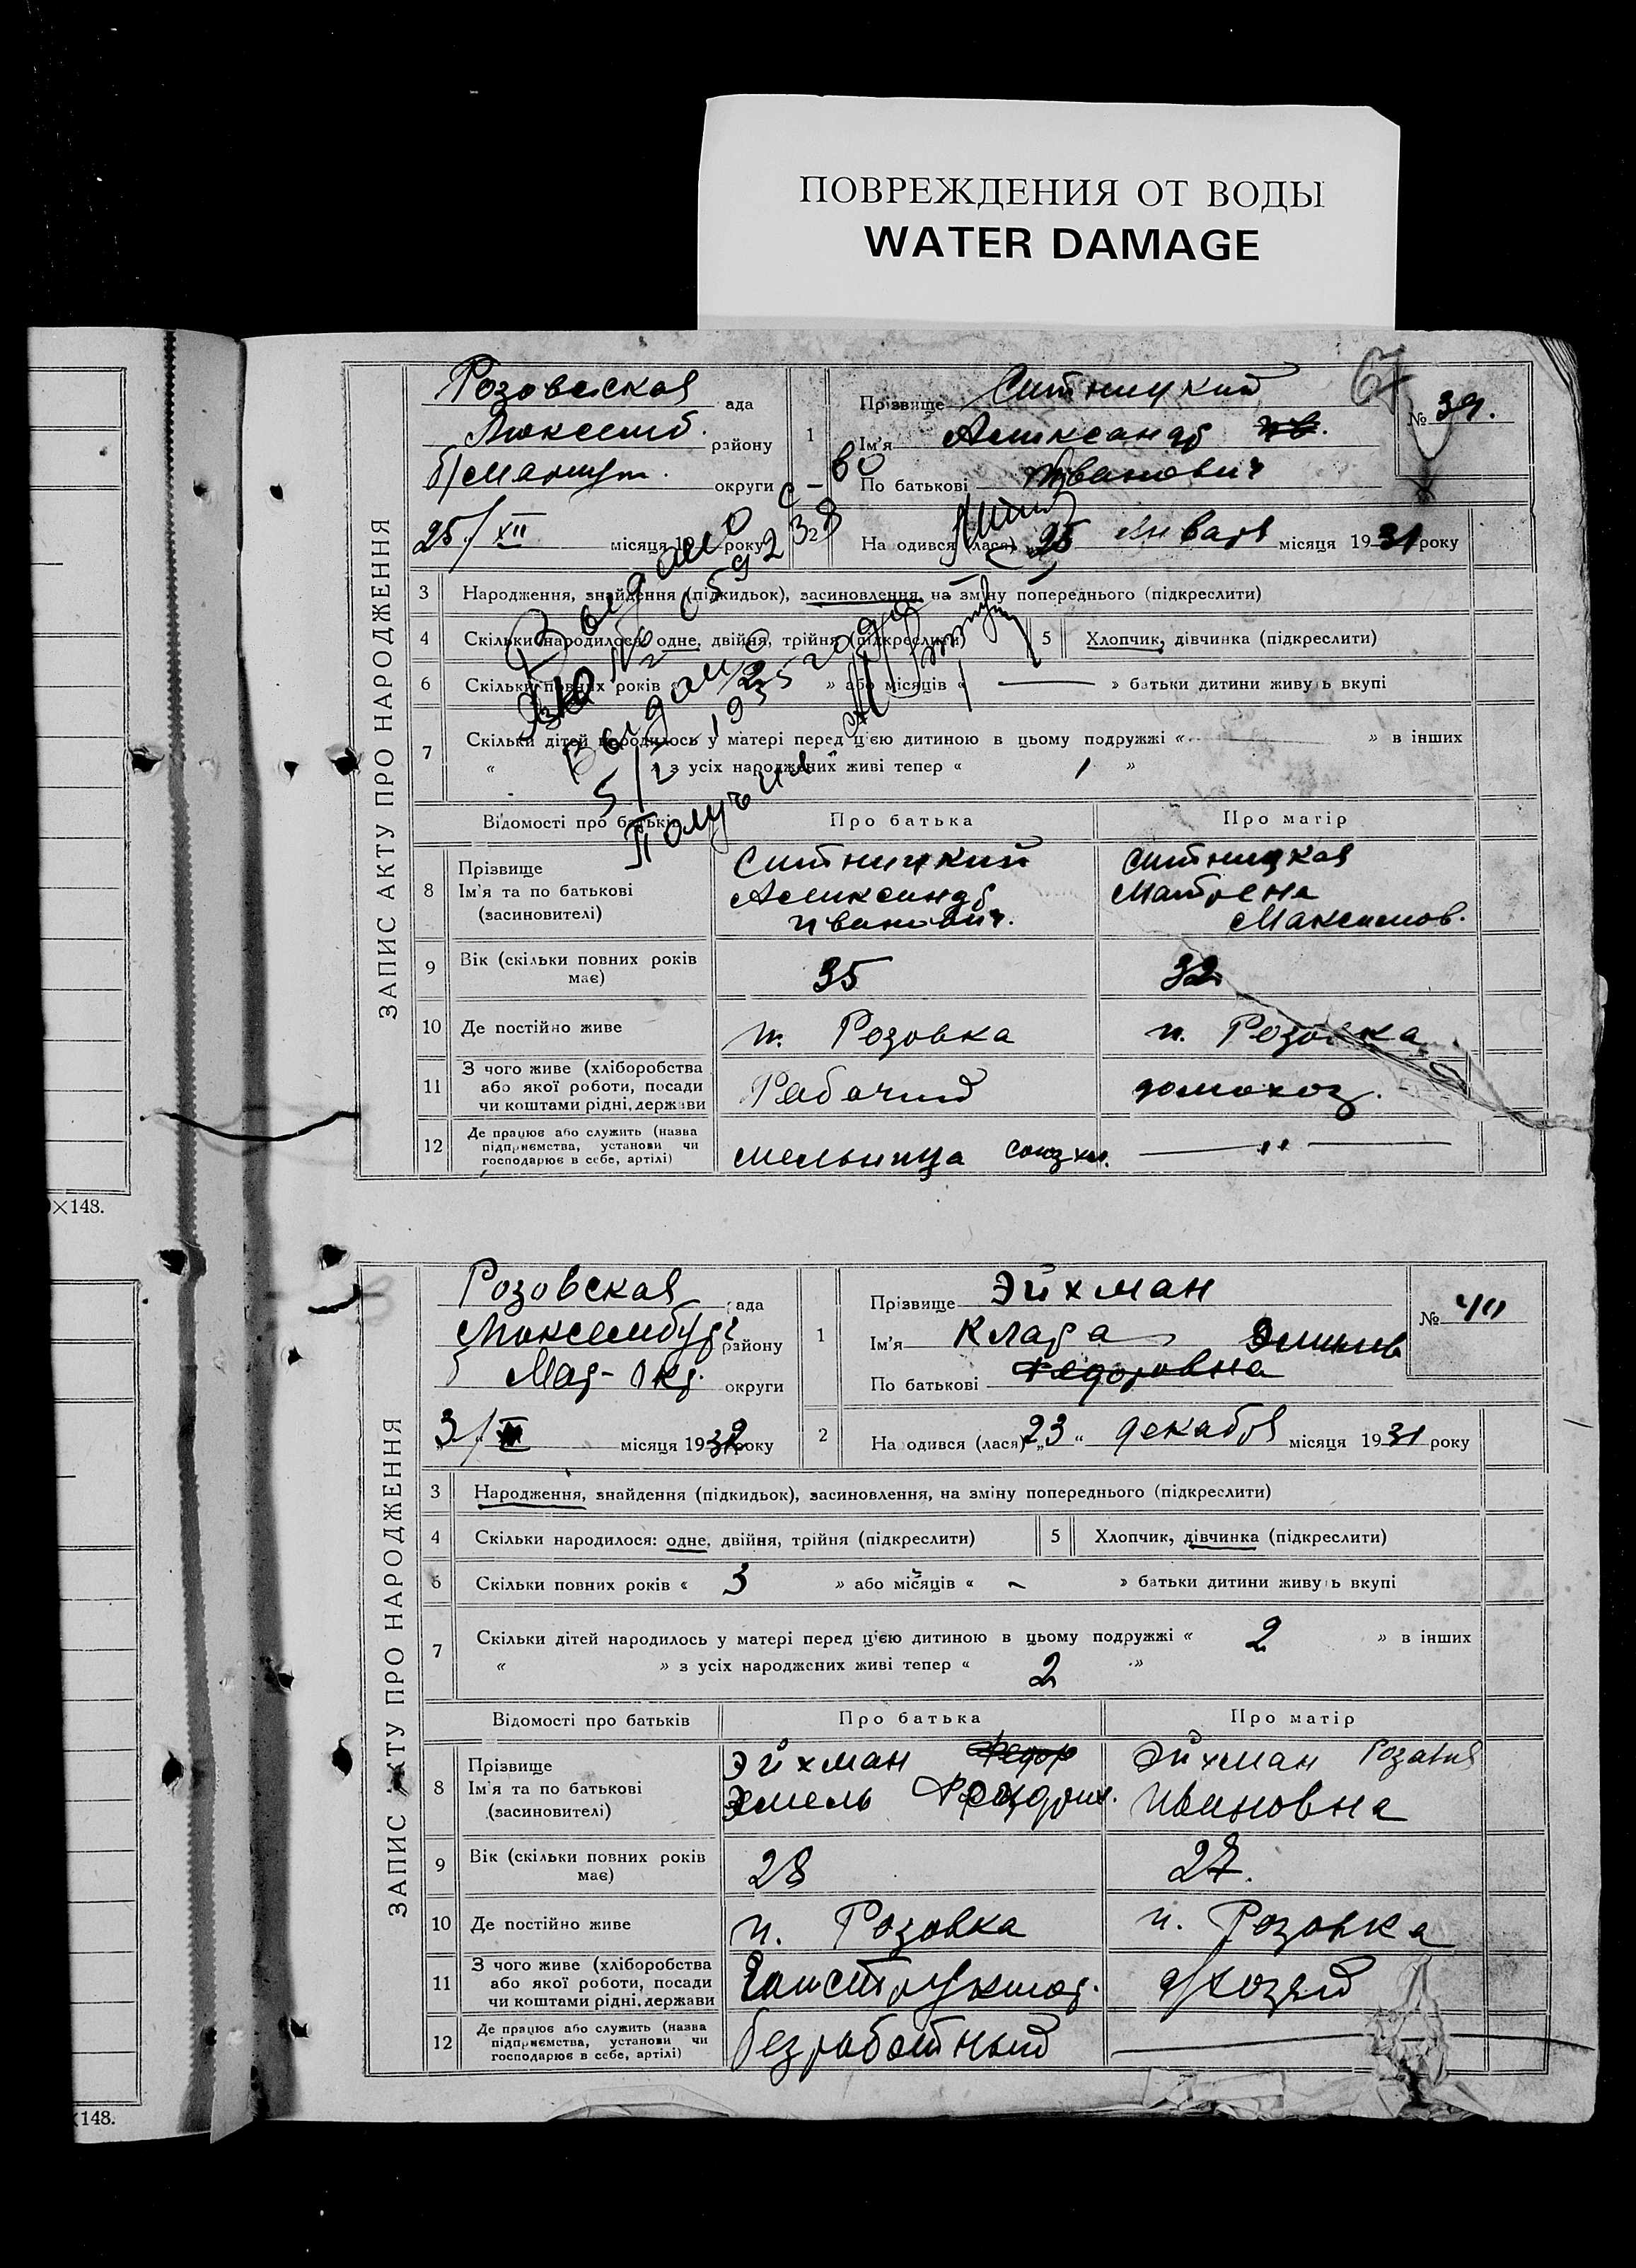 ПОВРЕЖДЕНИЯ ОТ ВОДЫ
WATER DAMAGE
67
ЗАПИС АКТУ ПРО НАРОДЖЕННЯ
Розовская ада
Люксемб. району
б/Мариуп. округи
25/XII місяця 19 року
1
Прізвище Ситницкий
Ім'я Александр
По батькові Иванович
№ 39.
2
На одився (лася) 25 января місяця 1931 року
Выдано с-во
№ 0592 38
Выдано
5/ 1935 года
Получил
3 Народження, знайдення (підкидьок), засиновлення, на зміну попереднього (підкреслити)
4 Скільки народилося: одне, двійня, трійня (підкреслити) 5 Хлопчик, дівчинка (підкреслити)
6 Скільки повних років « 2 » або місяців « — » батьки дитини живуть вкупі
7 Скільки дітей народилось у матері перед цією дитиною в цьому подружжі « — » в інших
« » з усіх народжених живі тепер « 1 »
Відомості про батьків Про батька Про матір
8 Прізвище Ім'я та по батькові (засиновителі)
Ситницкий Александр Иванович.
Ситницкая Матрена Максимов.
9 Вік (скільки повних років має) 35 32
10 Де постійно живе п. Розовка п. Розовка
11 З чого живе (хліборобства або якої роботи, посади чи коштами рідні, держави Рабочий домохоз.
12 Де працює або служить (назва підприємства, установи чи господарює в себе, артілі) мельница — " —
×148.
ЗАПИС АКТУ ПРО НАРОДЖЕННЯ
Розовская ада
Люксембург району
Мар-Окр. округи
3/ місяця 1932 року
1
Прізвище Эйхман
Ім'я Клара Эмилев
По батькові Федоровна
№ 40
2
На одився (лася) „23“ декабря місяця 1931 року
3 Народження, знайдення (підкидьок), засиновлення, на зміну попереднього (підкреслити)
4 Скільки народилося: одне, двійня, трійня (підкреслити) 5 Хлопчик, дівчинка (підкреслити)
6 Скільки повних років « 3 » або місяців « - » батьки дитини живуть вкупі
7 Скільки дітей народилось у матері перед цією дитиною в цьому подружжі « 2 » в інших
« » з усіх народжених живі тепер « 2 »
Відомості про батьків Про батька Про матір
8 Прізвище Ім'я та по батькові (засиновителі)
Эйхман Федор Эмель Фридрих.
Эйхман Розалия Ивановна
9 Вік (скільки повних років має) 28 27.
10 Де постійно живе п. Розовка п. Розовка
11 З чого живе (хліборобства або якої роботи, посади чи коштами рідні, держави д/хозяй
12 Де працює або служить (назва підприємства, установи чи господарює в себе, артілі) безработный
×148.